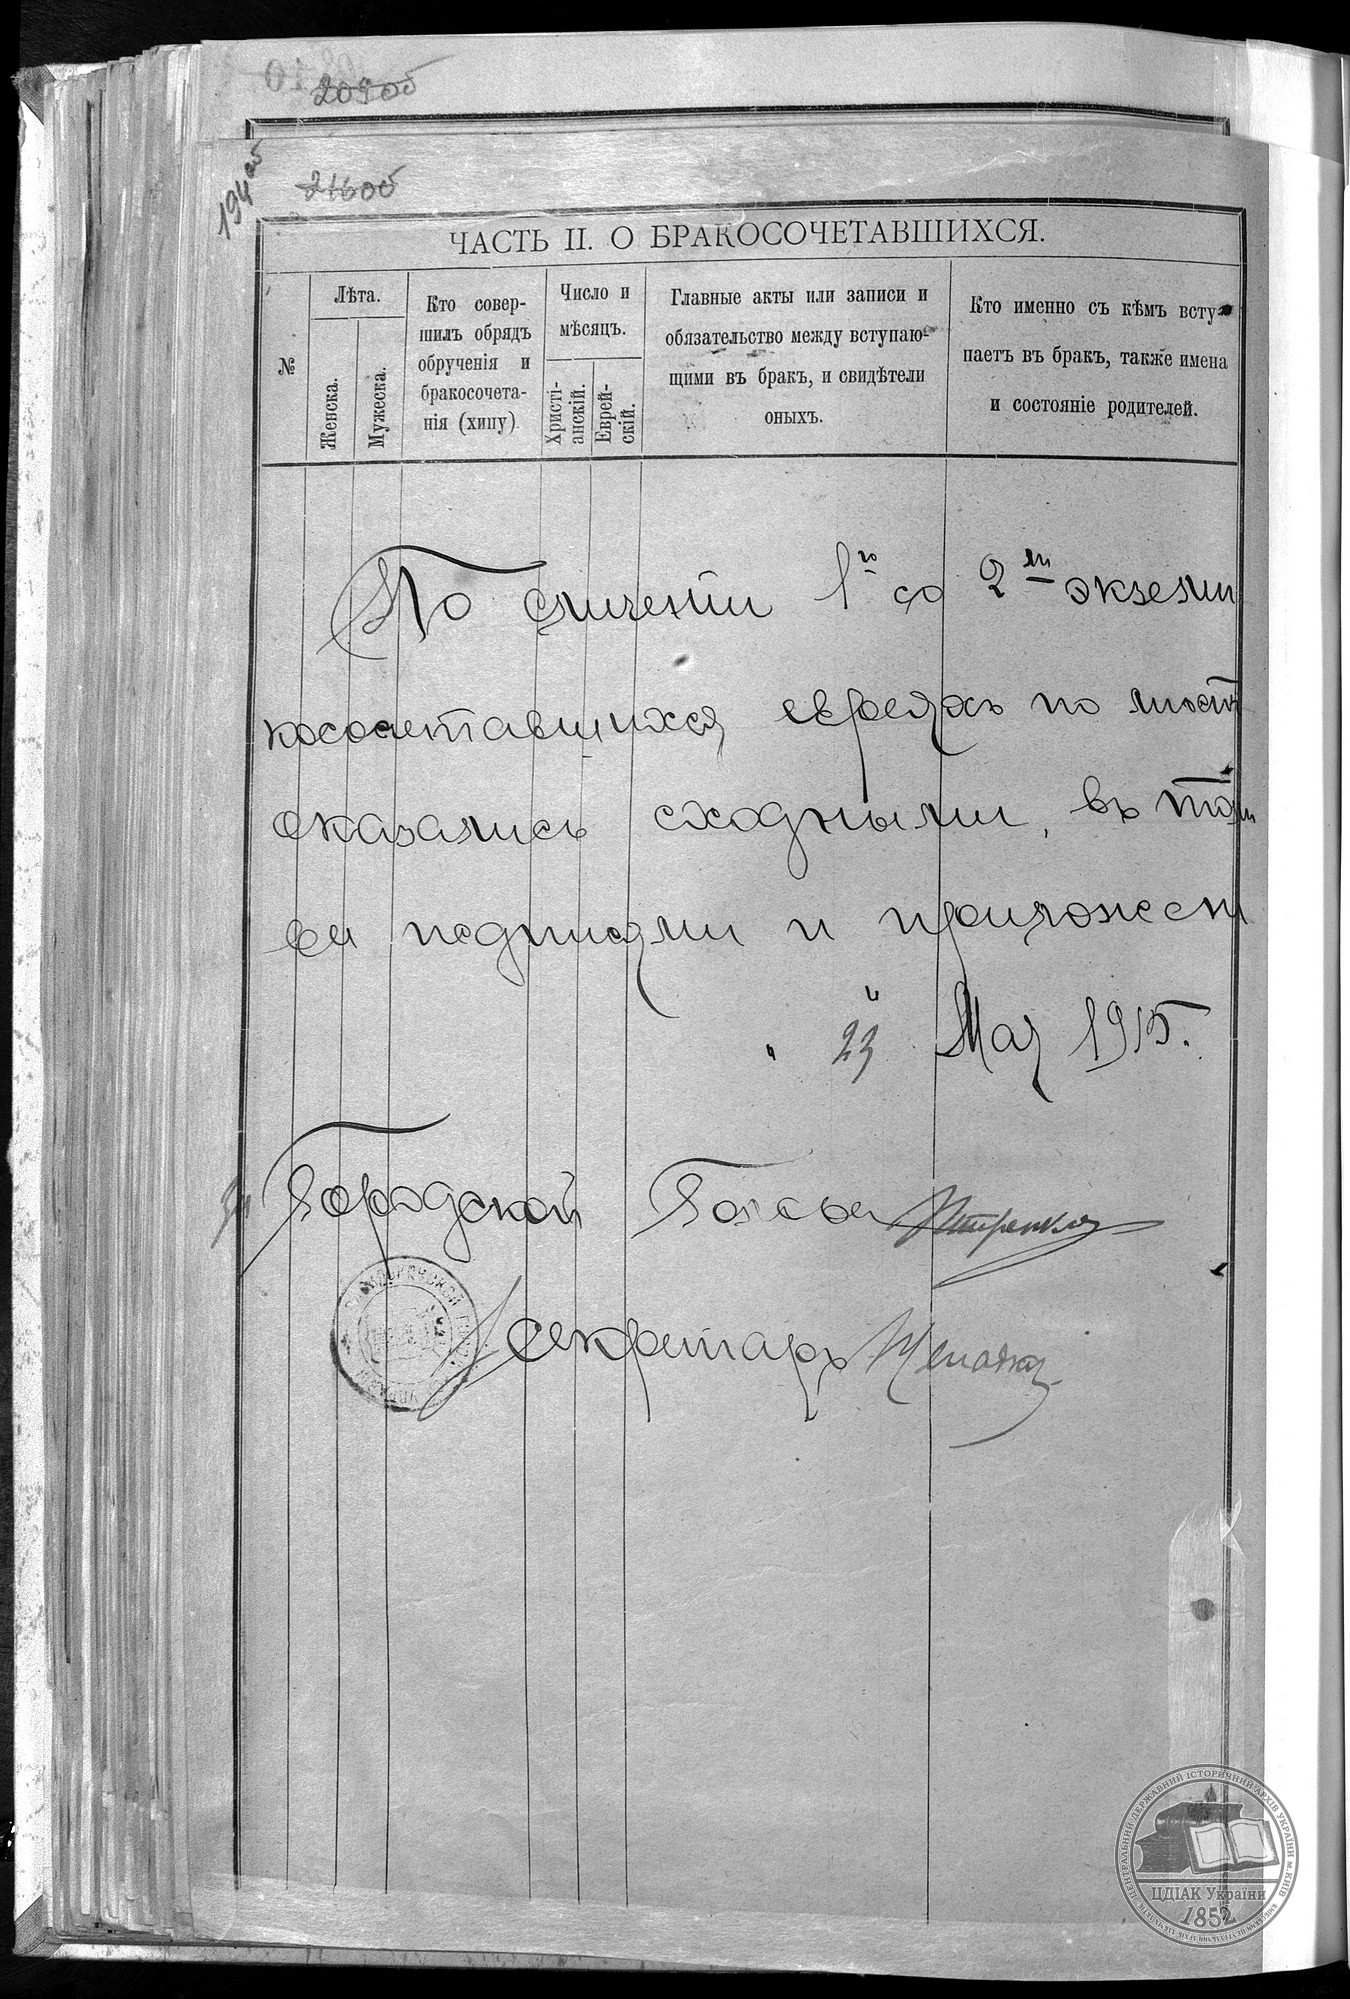 209об
194об
216об
ЧАСТЬ II. О БРАКОСОЧЕТАВШИХСЯ.
№
Лѣта.
Женска.
Мужеска.
Кто совер-
шилъ обрядъ
обрученія и
бракосочета-
нія (хипу)
Число и
мѣсяцъ.
Христі-
анскій.
Еврей-
скій.
Главные акты или записи и
обязательство между вступаю-
щими въ бракъ, и свидѣтели
оныхъ.
Кто именно съ кѣмъ всту-
паетъ въ брак, также имена
и состояніе родителей.
По сличеніи 1го со 2мъ экземп
косочетавшихся евреяхъ по
оказались сходными, въ томъ
подписями и приложен
" 23 " Мая 1915.
Городской
Секретарь
ЦЕНТРАЛЬНИЙ ДЕРЖАВНИЙ ІСТОРИЧНИЙ АРХІВ УКРАЇНИ м. КИЇВ
ЦДІАК України
1852